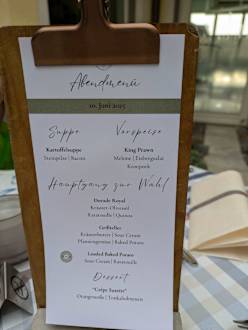 Abendmenü
10. Juni 2025
Suppe
Vorspeise
Kartoffelsuppe
Steinpilze | Bacon
King Prawn
Melone | Eisbergsalat
Kompott
Hauptgang zur Wahl
Dorade Royal
Kräuter-Olivenöl
Ratatouille | Quinoa
Grillteller
Kräuterbutter | Sour Cream
Pfannengemüse | Baked Potato
Loaded Baked Potato
Sour Cream | Ratatouille
Dessert
"Crêpe Suzette"
Orangensoße | Tonkabohneneis